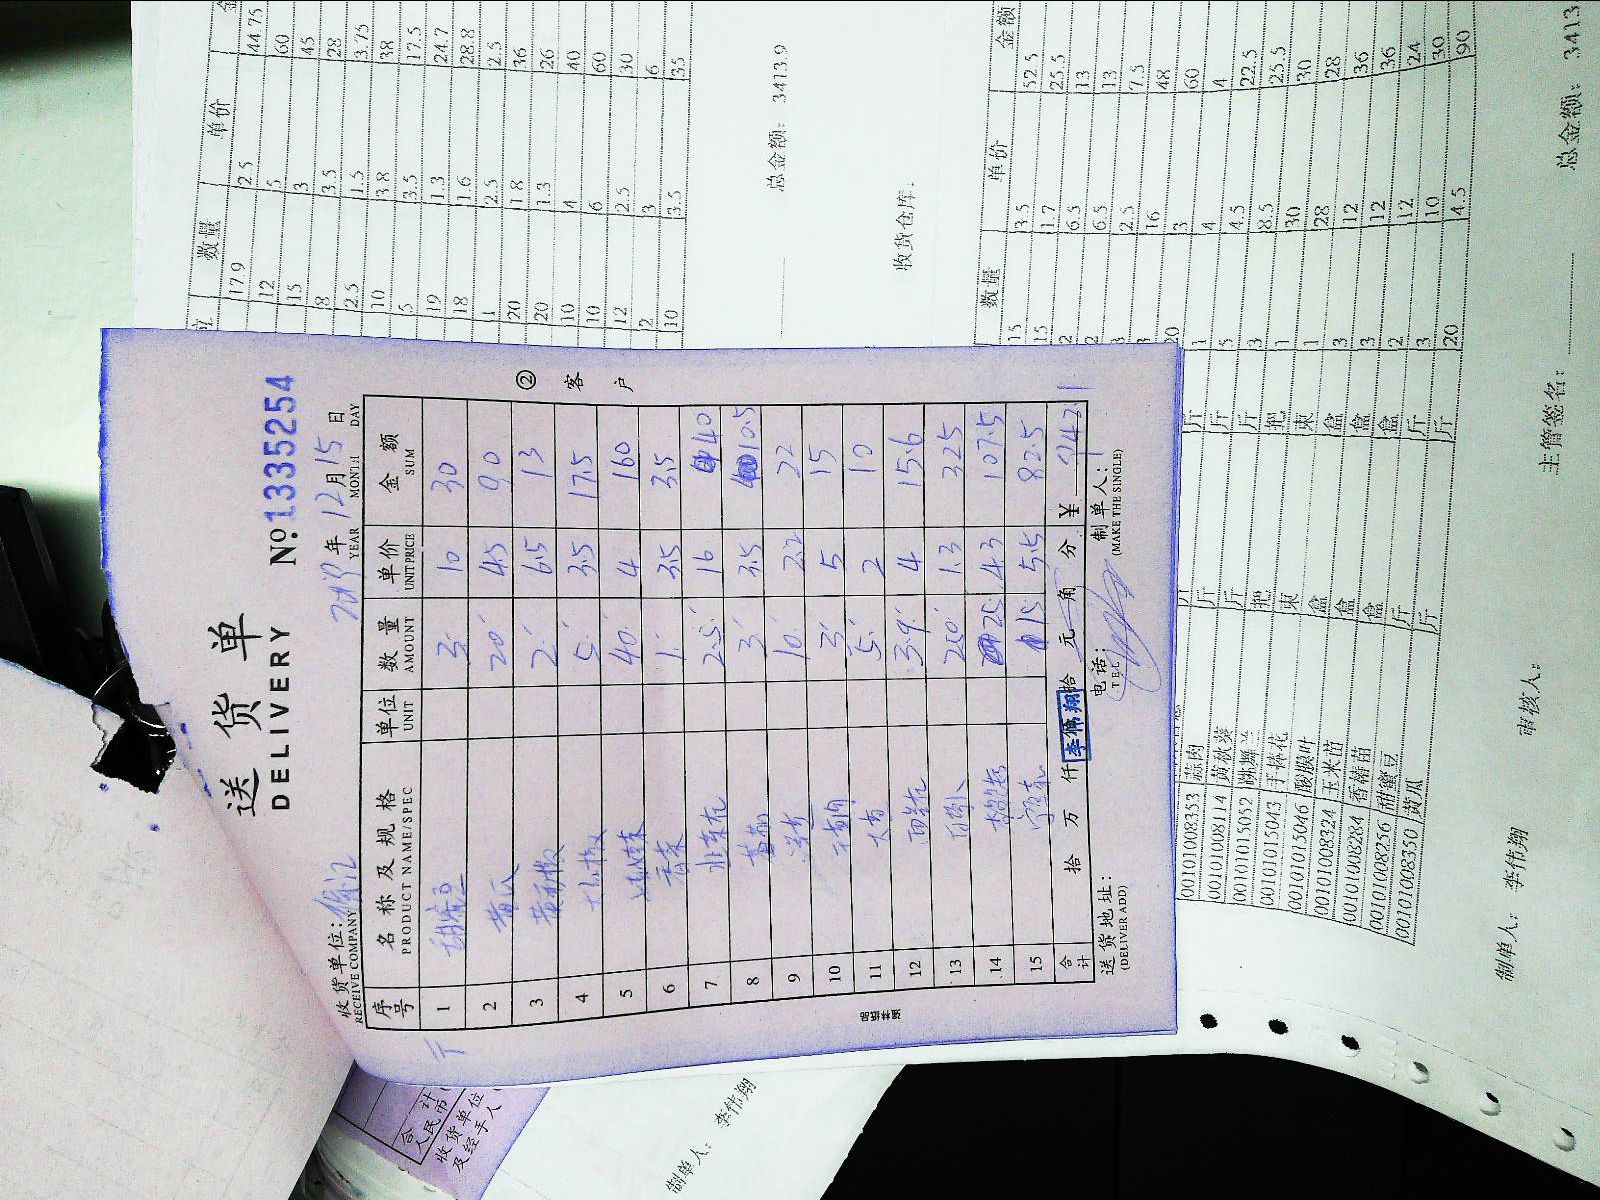 送货单
DELIVERY
№ 1335254
收货单位:
RECEIVE COMPANY
2019年 YEAR 12月 MONTH 15日 DAY
序号 名称及规格 PRODUCT NAME/SPEC 单位 UNIT 数量 AMOUNT 单价 UNIT PRICE 金额 SUM
1 甜蜜豆 3 10 30
2 黄瓜 20 4.5 90
3 2 6.5 13
4 5 3.5 17.5
5 40 4 160
6 香菜 1 3.5 3.5
7 韭菜花 2.5 16 40
8 3 3.5 10.5
9 10 2.2 22
10 3 5 15
11 5 2 10
12 西芹 39 4 156
13 白萝卜 250 1.3 325
14 25 4.3 107.5
15 15 5.5 82.5
合计 拾 万 仟 拾 元 角 分 ¥
李伟翔
送货地址:
(DELIVER ADD)
电话:
TEL
制单人:
(MAKE THE SINGLE)
② 客户
数量 单价
17.9 2.5 44.75
12 5 60
15 3 45
8 3.5 28
2.5 1.5 3.75
10 3.8 38
5 3.5 17.5
19 1.3 24.7
18 1.6 28.8
1 2.5 2.5
20 1.8 36
20 1.3 26
10 4 40
10 6 60
12 2.5 30
2 3 6
10 3.5 35
总金额: 3413.9
收货仓库:
数量 单价 金额
15 3.5 52.5
15 1.7 25.5
2 6.5 13
2 6.5 13
3 2.5 7.5
3 16 48
20 3 60
1 4 4
5 4.5 22.5
3 8.5 25.5
1 30 30
1 28 28
3 12 36
3 12 36
2 12 24
3 10 30
20 4.5 90
00101008353 蒜肉 斤 斤
0010100814 黄秋葵 斤 斤
00101015032 跳舞兰 斤 斤
00101015043 手捧花 把 把
00101015046 束 束
00101008324 玉米苗 盒 盒
00101008284 香椿苗 盒 盒
00101008256 甜蜜豆 盒 盒
00101008350 黄瓜 斤 斤
总金额: 3413
主管签名:
审核人:
制单人: 李伟翔
合计
人民币
收货单位
及经手人
制单人: 李伟翔